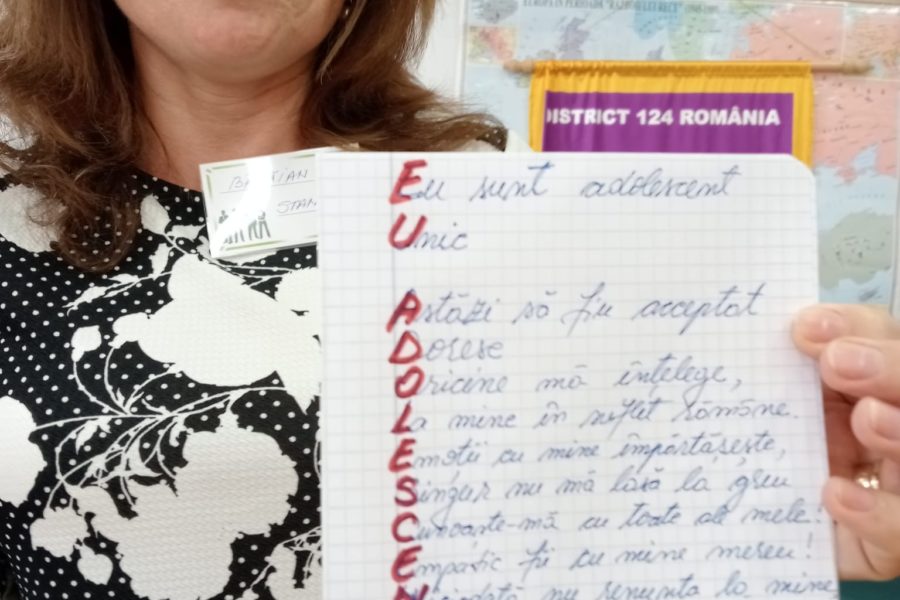 EUROPA ÎN PERIOADA "RĂZBOIULUI RECE"
DISTRICT 124 ROMÂNIA
STAN
Eu sunt adolescent
Unic
Astăzi să fiu acceptat
Doresc
Oricine mă înțelege,
La mine în suflet rămâne.
Emoții cu mine împărtășește,
Singur nu mă lasă la greu
Cunoaște-mă cu toate ale mele!
Empatic fii cu mine mereu!
Niciodată nu renunța la mine